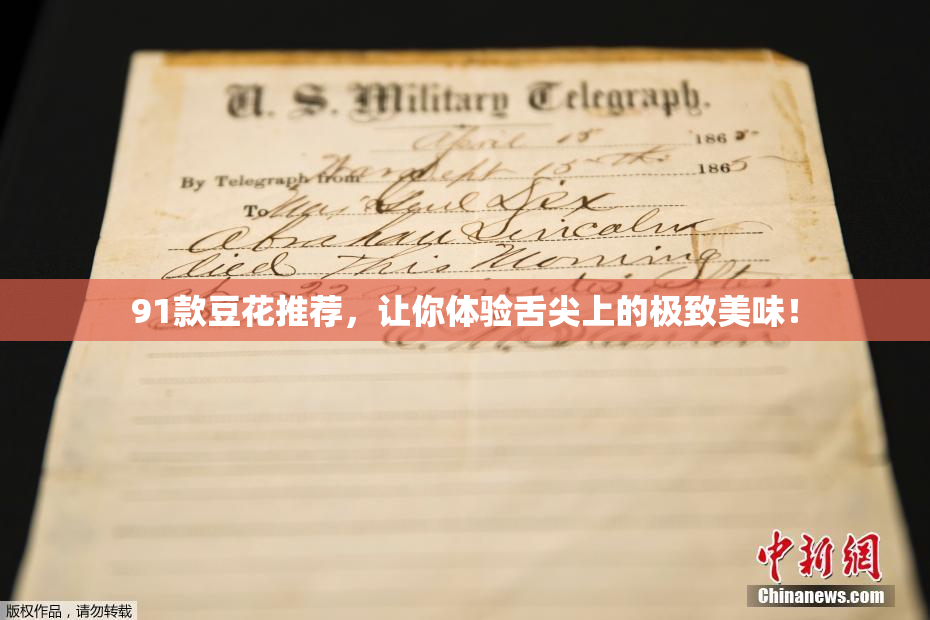 U. S. Military Telegraph.
April 15 1865
By Telegraph from War Dept 15th 1865
To Maj Genl Dix
Abraham Lincoln
died This Morning
at 22 minutes after
91款豆花推荐，让你体验舌尖上的极致美味！
E. M. Stanton
中新网
Chinanews.com
版权作品，请勿转载